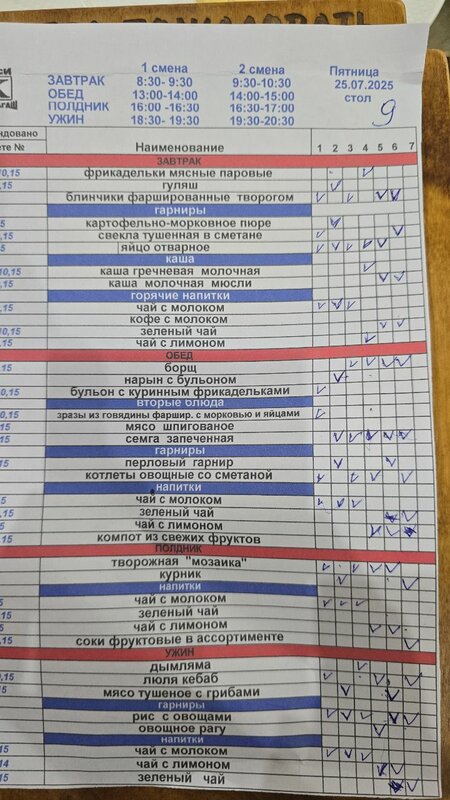 ПОЖАЛОВАТЬ
1 смена 2 смена Пятница
ЗАВТРАК 8:30- 9:30 9:30-10:30 25.07.2025
ОБЕД 13:00-14:00 14:00-15:00 стол
ПОЛДНИК 16:00 -16:30 16:30-17:00 9
УЖИН 18:30- 19:30 19:30-20:30
Наименование 1 2 3 4 5 6 7
ЗАВТРАК
фрикадельки мясные паровые
гуляш
блинчики фаршированные творогом
гарниры
картофельно-морковное пюре
свекла тушенная в сметане
яйцо отварное
каша
каша гречневая молочная
каша молочная мюсли
горячие напитки
чай с молоком
кофе с молоком
зеленый чай
чай с лимоном
ОБЕД
борщ
нарын с бульоном
бульон с куринным фрикадельками
вторые блюда
зразы из говядины фаршир. с морковью и яйцами
мясо шпигованое
семга запеченная
гарниры
перловый гарнир
котлеты овощные со сметаной
напитки
чай с молоком
зеленый чай
чай с лимоном
компот из свежих фруктов
ПОЛДНИК
творожная "мозаика"
курник
напитки
чай с молоком
зеленый чай
чай с лимоном
соки фруктовые в ассортименте
УЖИН
дымляма
люля кебаб
мясо тушеное с грибами
гарниры
рис с овощами
овощное рагу
напитки
чай с молоком
чай с лимоном
зеленый чай